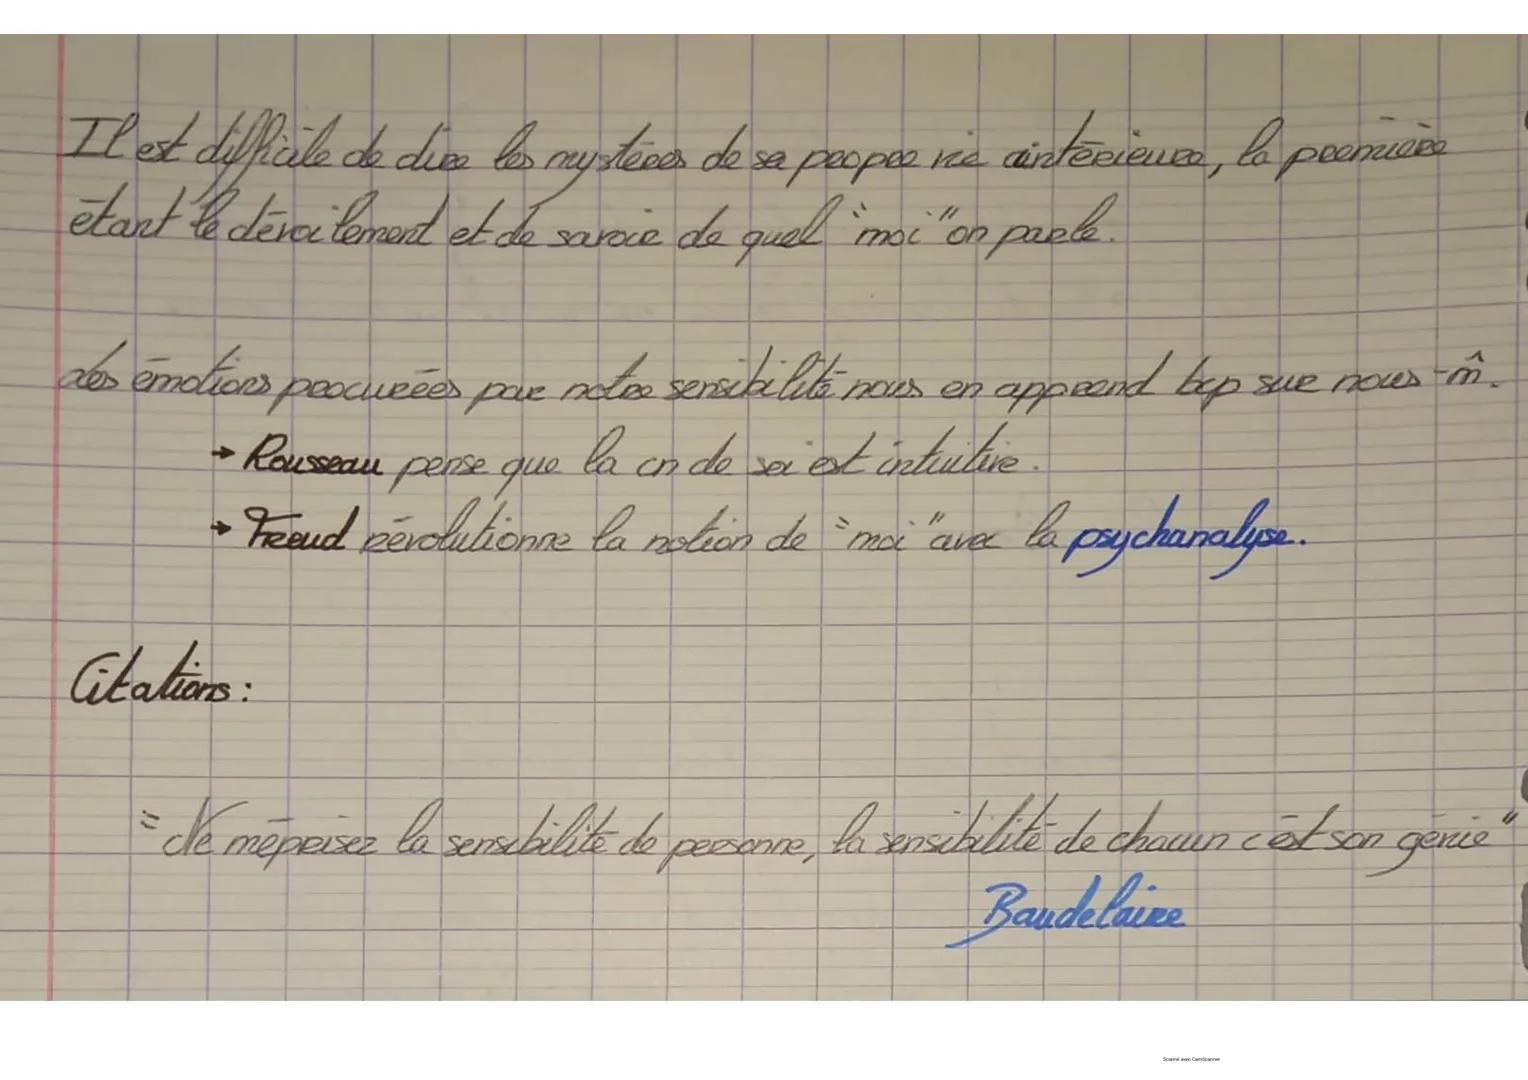 Il est difficile de dire les mystères de sa propre vie intérieure, la première
étant le dévoilement et de savoir de quel "moi" on parle.
Les émotions procurées par notre sensibilité nous en apprend bcp sur nous-m̂.
→ Rousseau pense que la cn de soi est intuitive.
→ Freud révolutionne la notion de "moi" avec la psychanalyse.
Citations :
"Ne méprisez la sensibilité de personne, la sensibilité de chacun c'est son génie"
Baudelaire
Scanné avec CamScanner